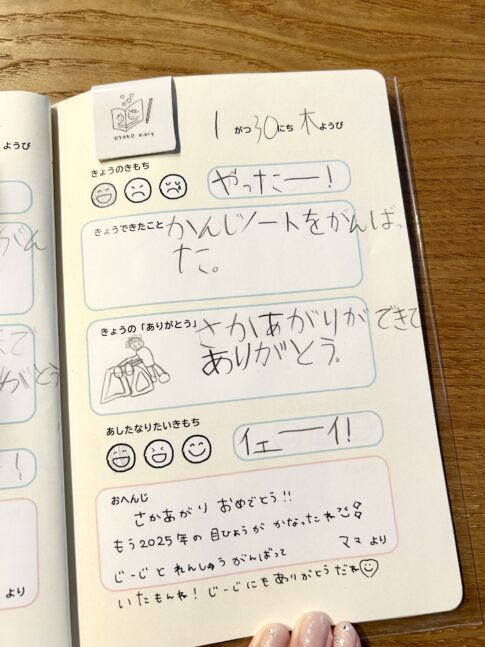 OYAKO diary
1がつ30にち木ようび
きょうのきもち
やったー!
きょうできたこと
かんじノートをがんばっ
た。
きょうの「ありがとう」
さかあがりができて
ありがとう。
あしたなりたいきもち
イエーイ!
おへんじ
さかあがり おめでとう!!
もう2025年の目ひょうが かなったね
ママより
じーじと れんしゅう がんばって
いたもんね!じーじにもありがとうだね
ようび
がん
で
がとう
より